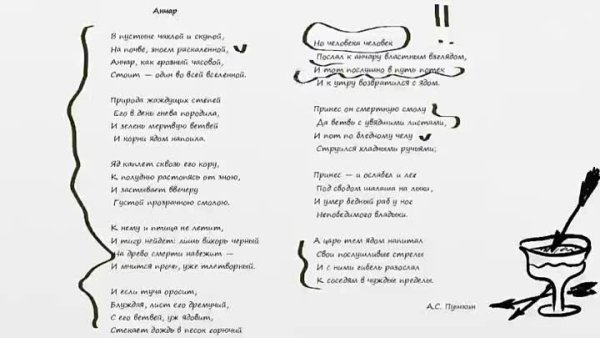 Анчар
В пустыне чахлой и скупой,
На почве, зноем раскаленной,
Анчар, как грозный часовой,
Стоит — один во всей вселенной.
Природа жаждущих степей
Его в день гнева породила,
И зелень мертвую ветвей
И корни ядом напоила.
Яд каплет сквозь его кору,
К полудню растопясь от зною,
И застывает ввечеру
Густой прозрачною смолою.
К нему и птица не летит,
И тигр нейдет: лишь вихорь черный
На древо смерти набежит —
И мчится прочь, уже тлетворный.
И если туча оросит,
Блуждая, лист его дремучий,
С его ветвей, уж ядовит,
Стекает дождь в песок горючий
!!
Но человека человек
Послал к анчару властным взглядом,
И тот послушно в путь потек
И к утру возвратился с ядом.
Принес он смертную смолу
Да ветвь с увядшими листами,
И пот по бледному челу
Струился хладными ручьями;
Принес — и ослабел и лег
Под сводом шалаша на лыки,
И умер бедный раб у ног
Непобедимого владыки.
А царь тем ядом напитал
Свои послушливые стрелы
И с ними гибель разослал
К соседям в чуждые пределы.
А.С. Пушкин